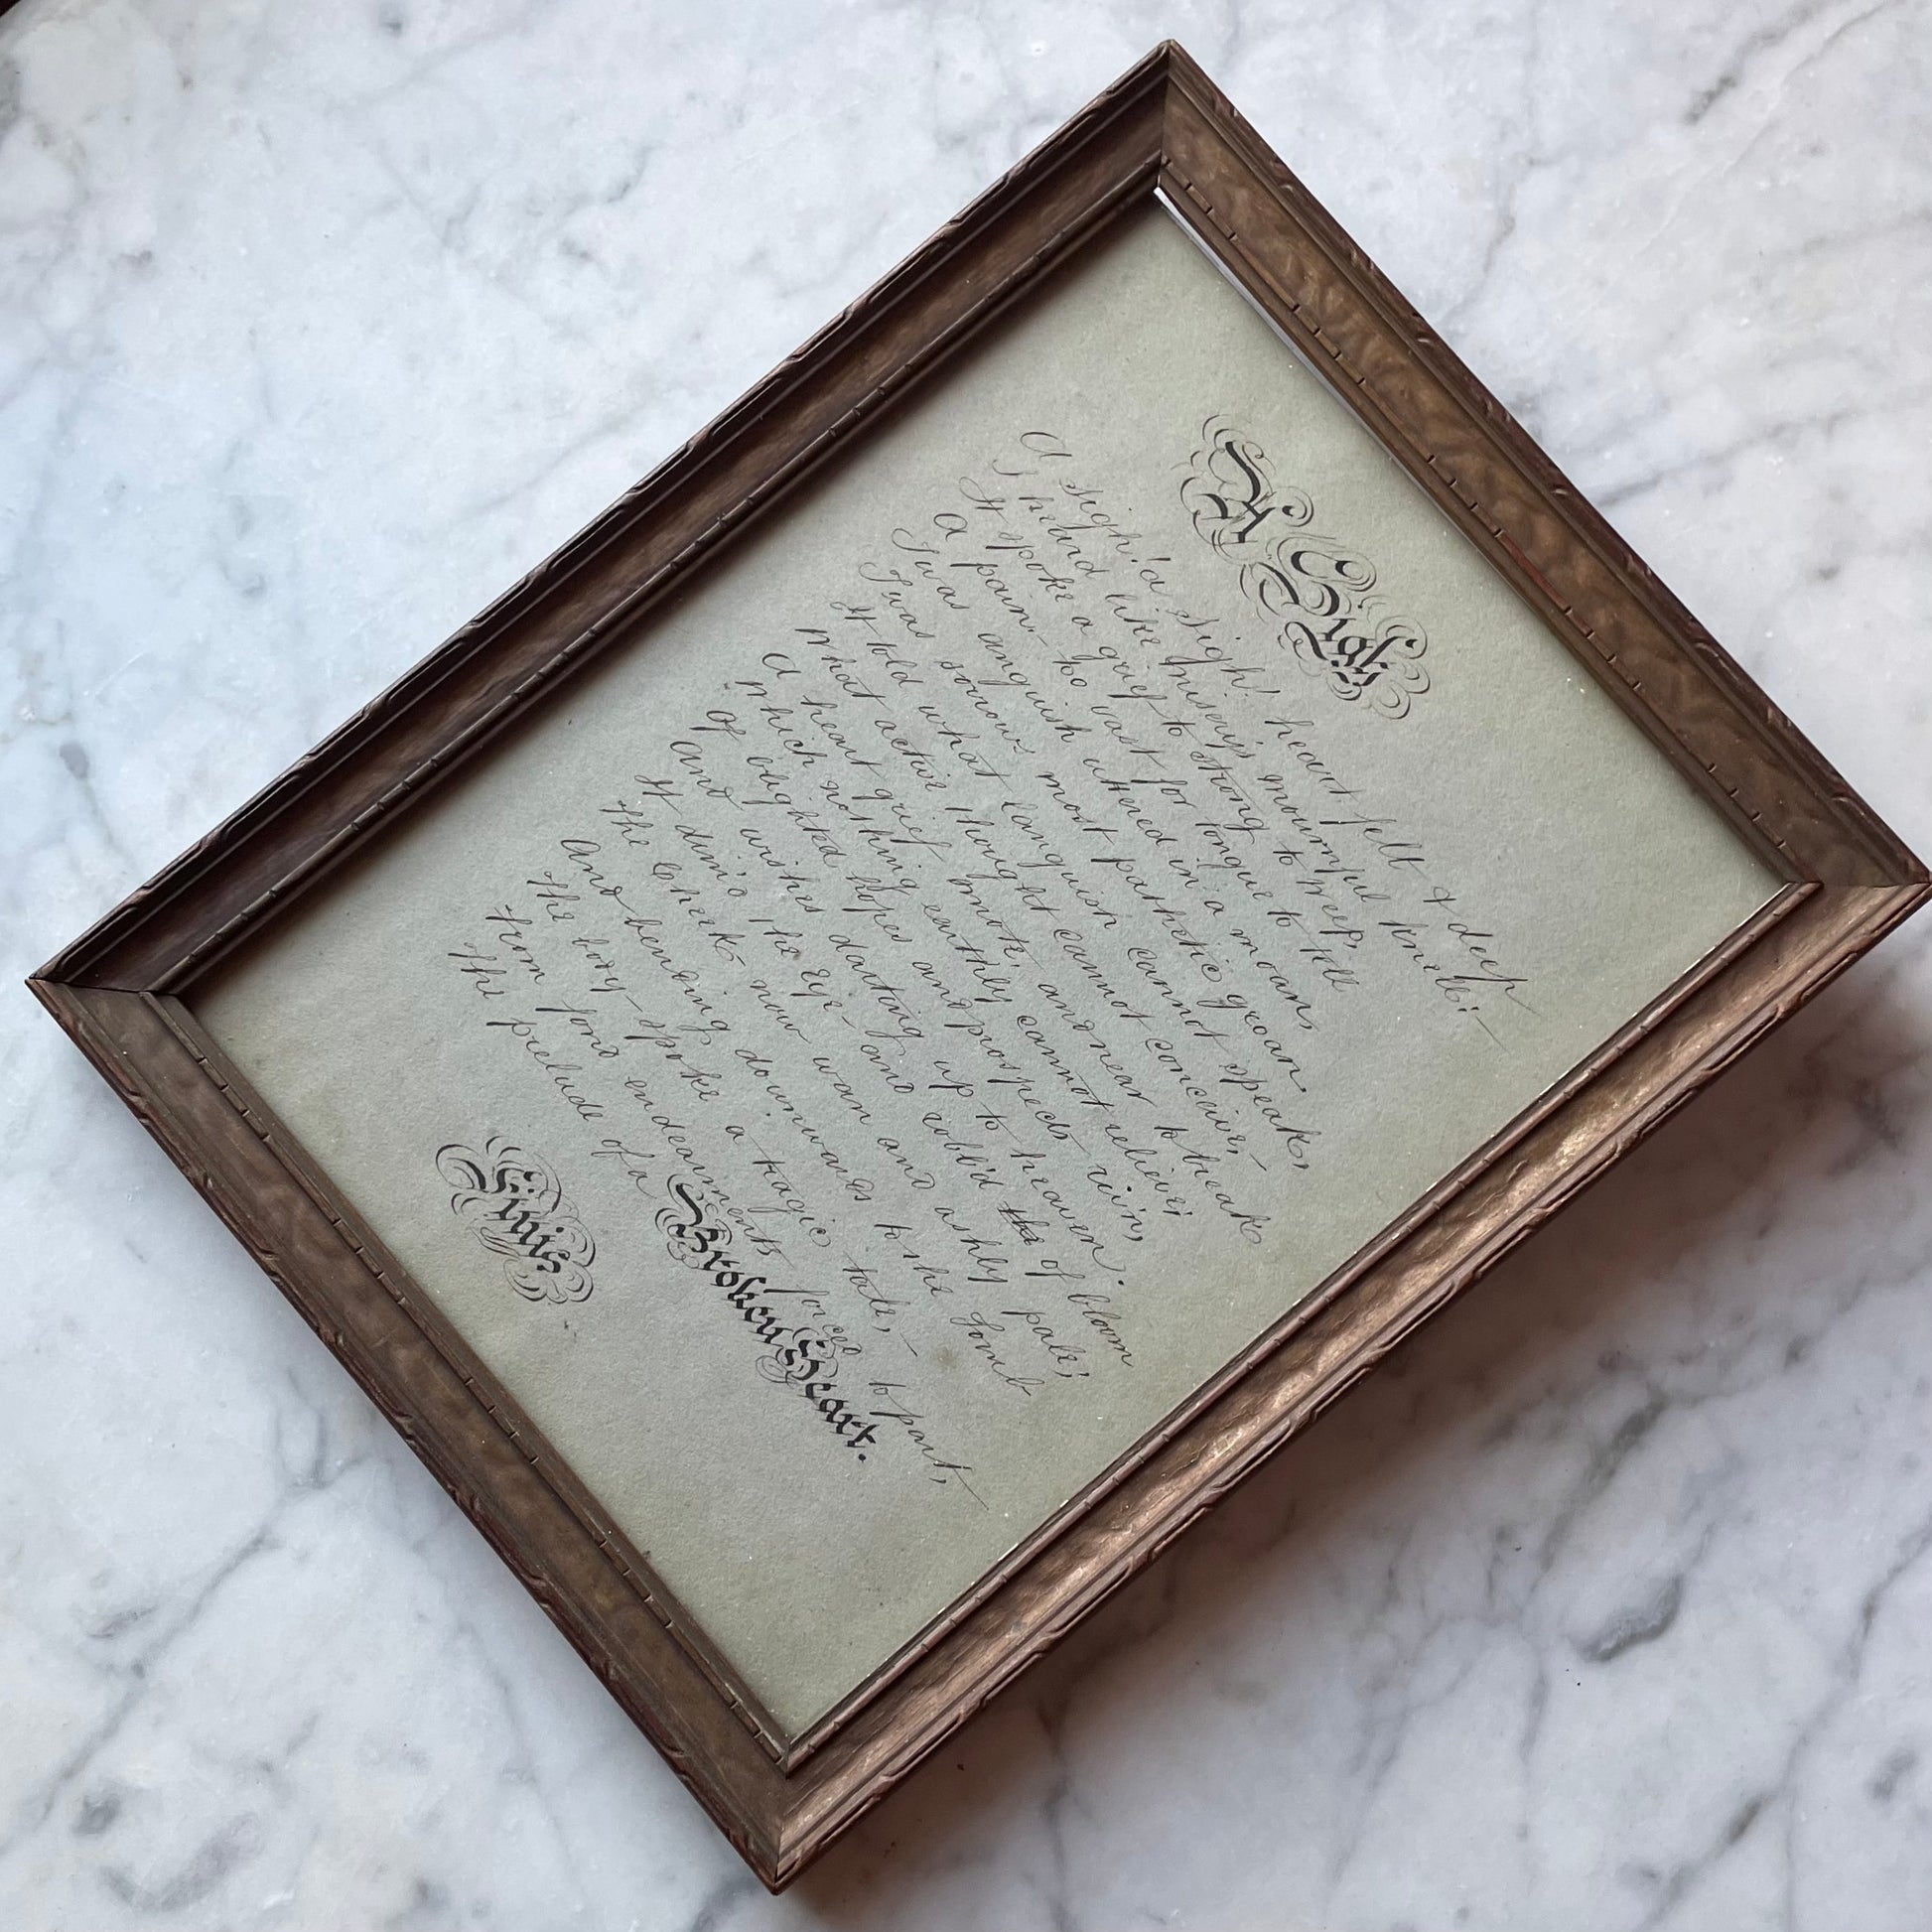 A Sigh.
A sigh! a sigh! heart felt & deep
I heard like misery's mournful knell;
It spoke a grief to strong to weep,
A pain - to vast for tongue to tell
Twas anguish uttered in a moan,
Twas sorrows most pathetic groan.
It told what languish cannot speak,
What active thought cannot conceive, -
A heart grief smote, and near to break
Which nothing earthly cannot relieve;
Of blighted hopes and prospects riv'n,
And wishes darting up to heaven.
It dim'd the Eye - and robb'd the of bloom
The Cheek - now wan and ashly pale;
And bending downwards to the Tomb
The body - spoke a tragic tale, -
From fond endearments forced to part,
The prelude of a Broken Heart.
Finis